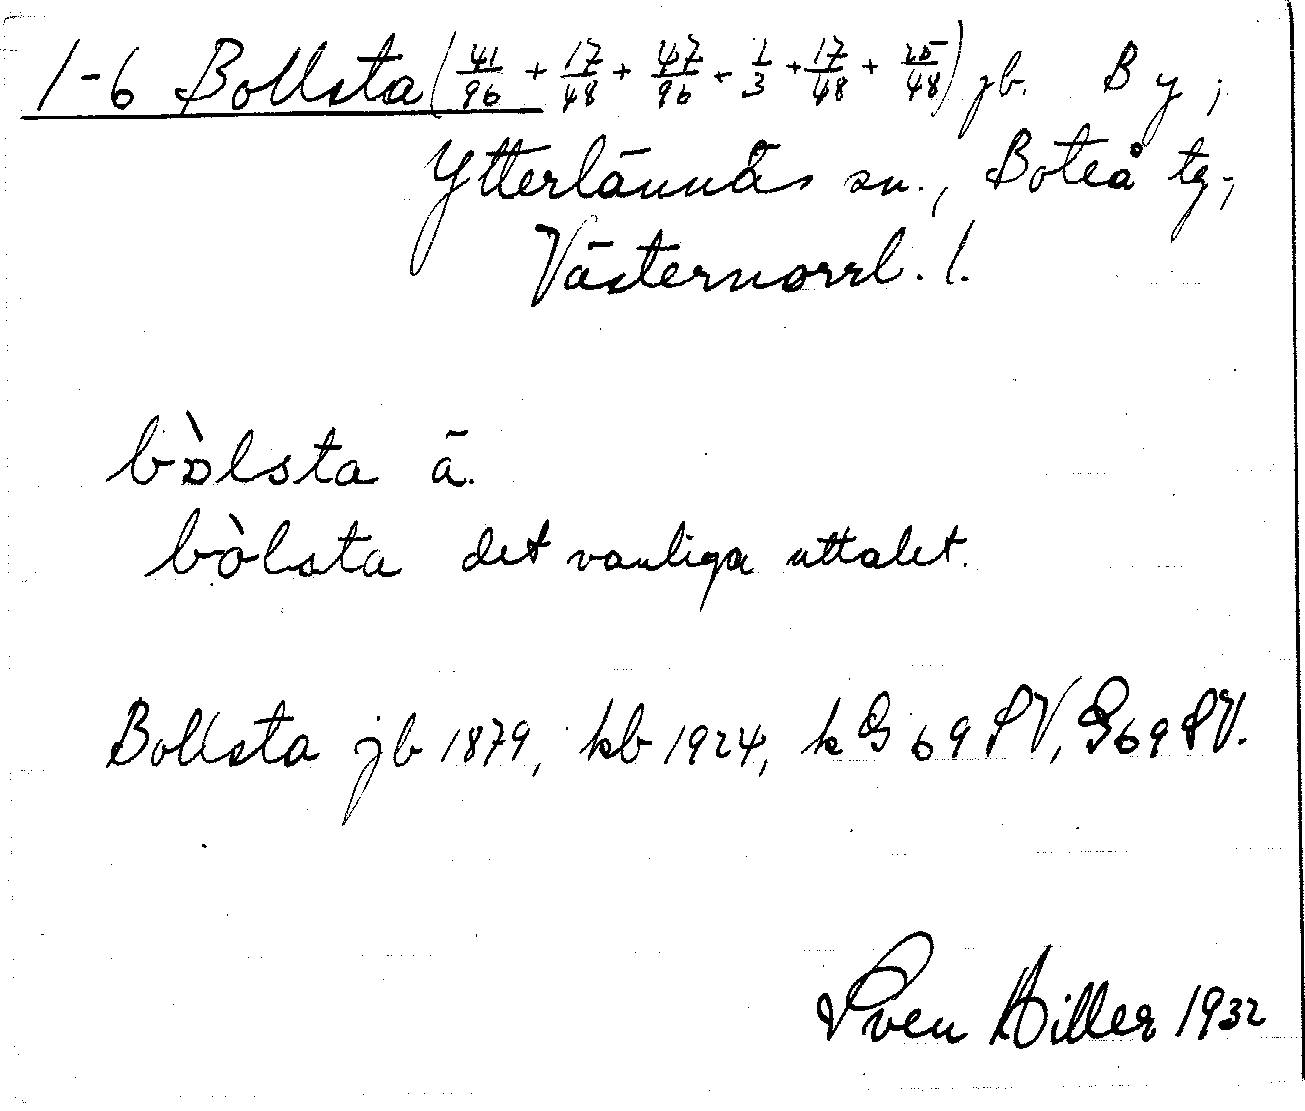 1-6 Bollsta (41/96 + 17/48 + 47/96 - 1/3 + 17/48 + 25/48) jb. By,
Ytterlännäs sn., Boteå tg,
Västernorrl. l.
bòlsta ä.
bòlsta det vanliga uttalet.
Bollsta jb 1879, kb 1924, k G 69 SV, G 69 SV.
Sven Hiller 1932